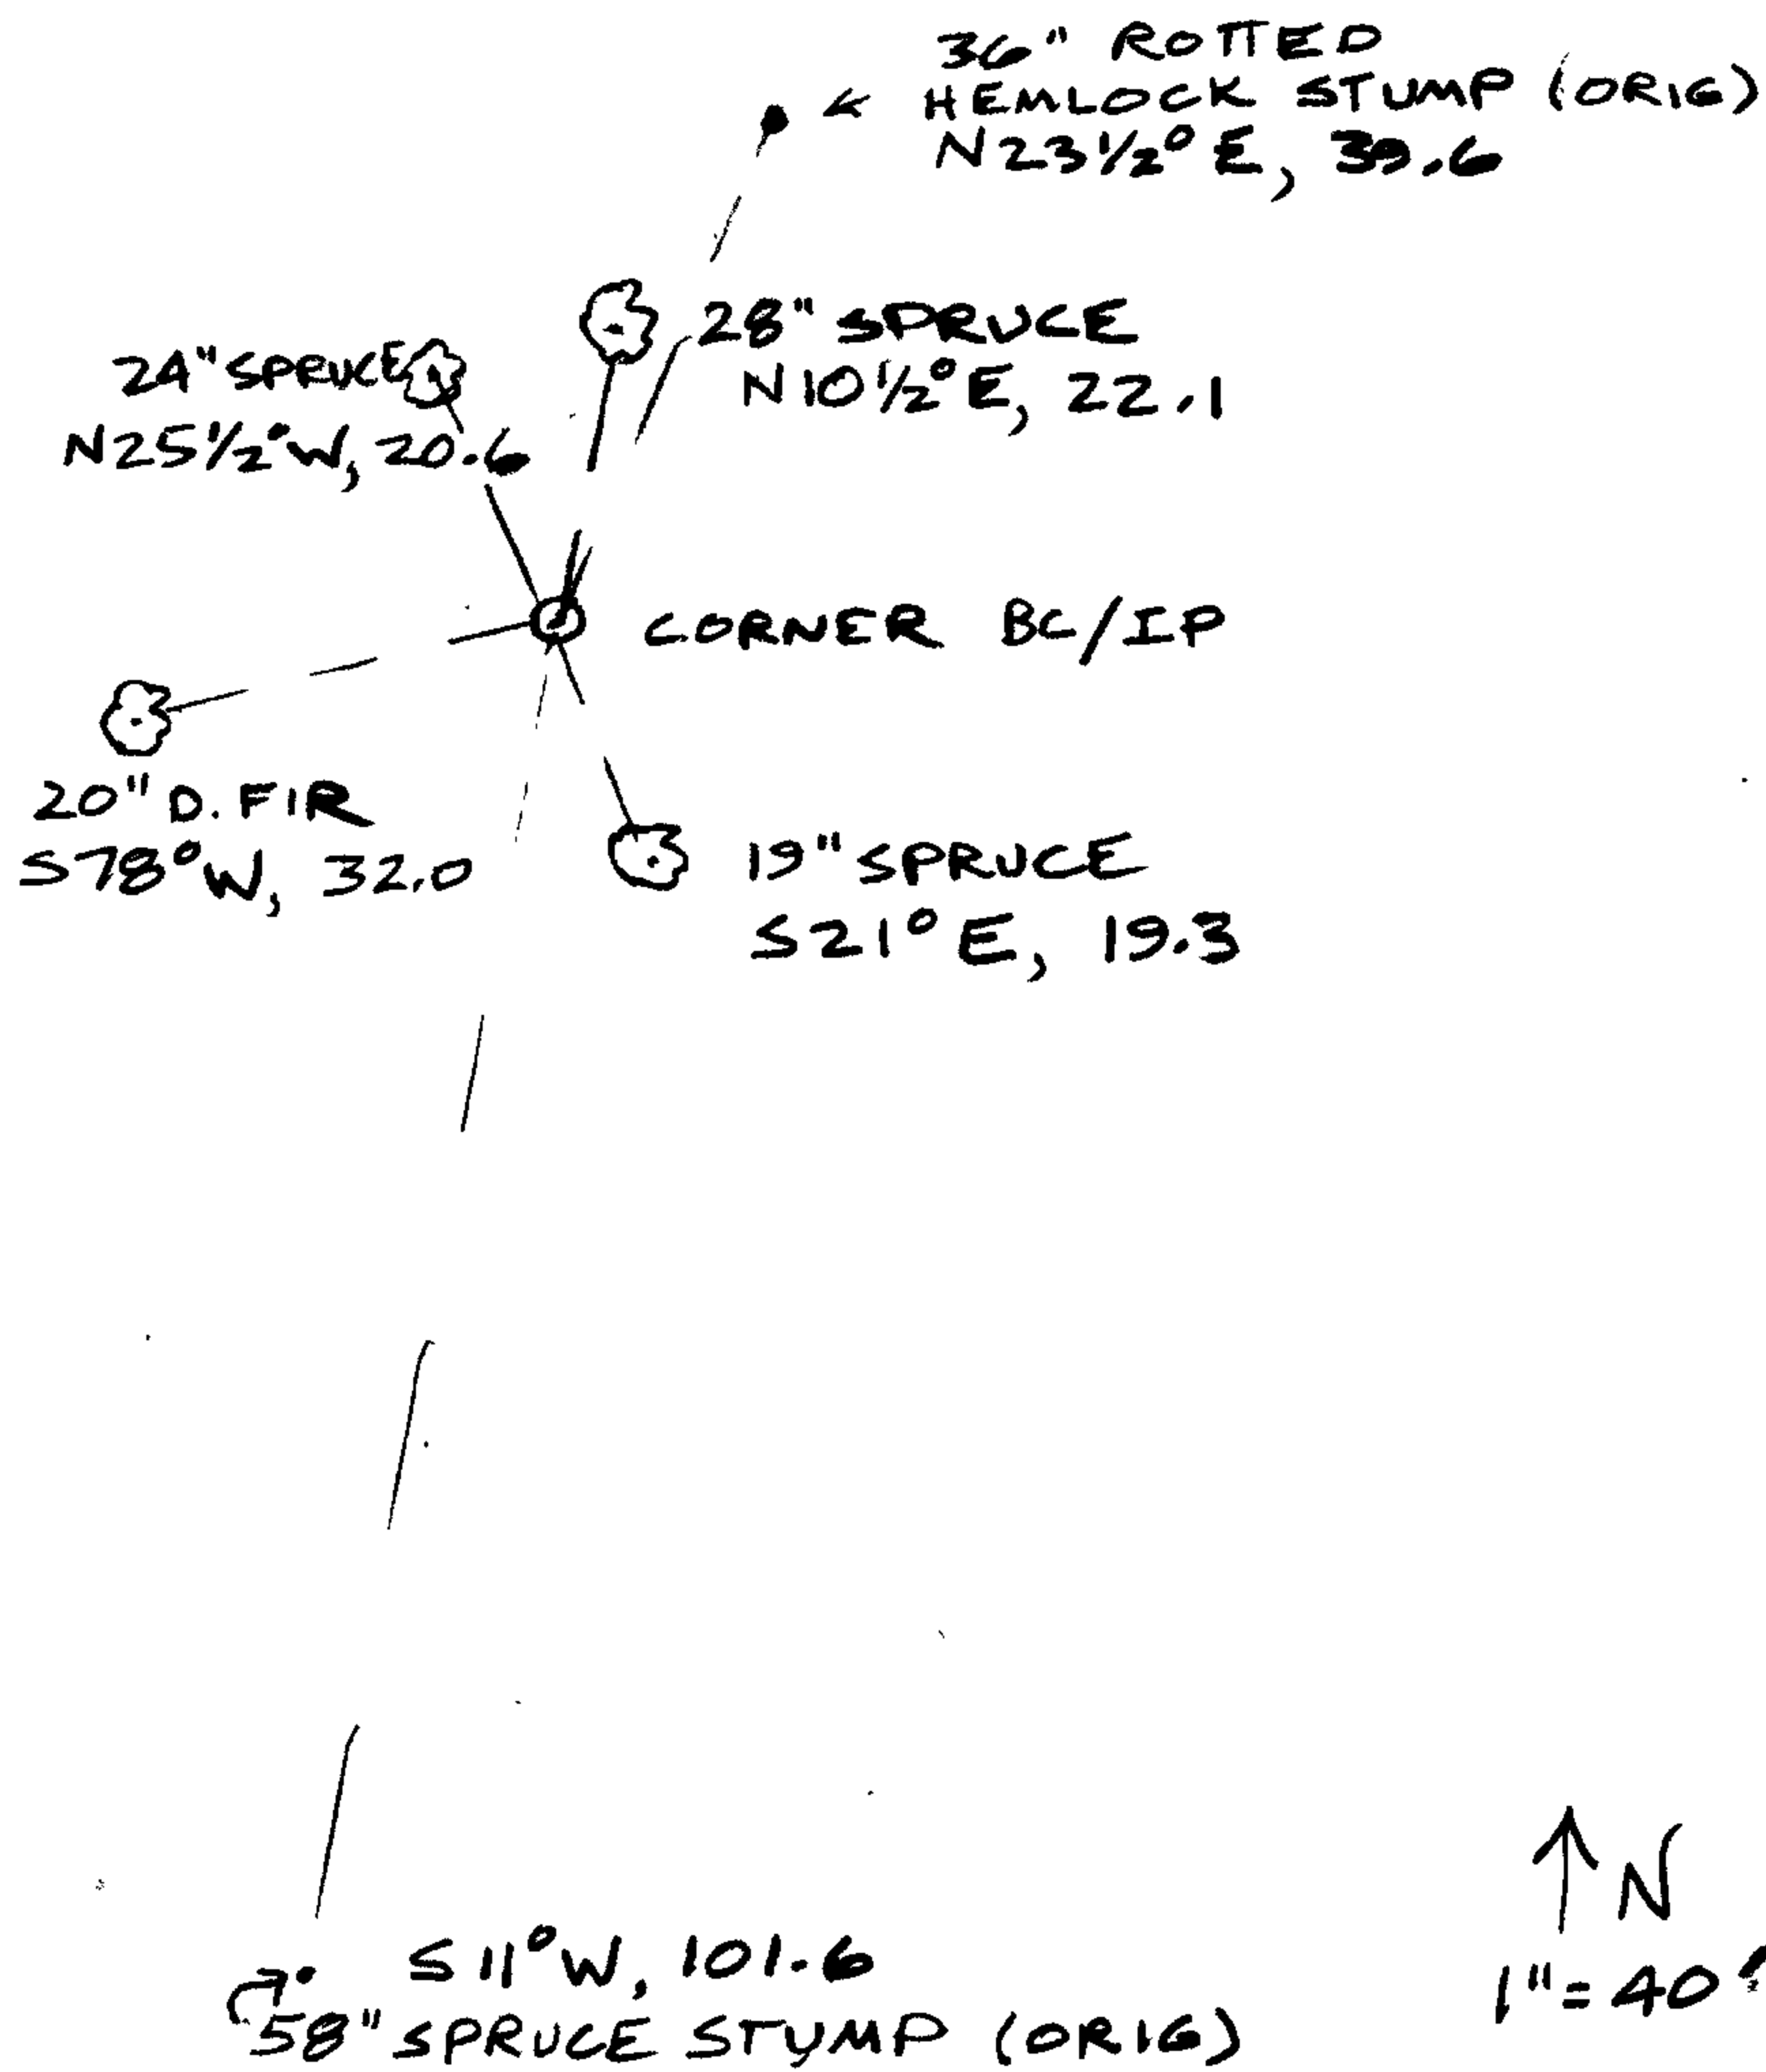 36" ROTTED
HEMLOCK STUMP (ORIG)
N23½° E, 39.6
28" SPRUCE
N10½° E, 22.1
24" SPRUCE
N25½° W, 20.6
CORNER BC/IP
20" D. FIR
S78° W, 32.0
19" SPRUCE
S21° E, 19.3
S11° W, 101.6
58" SPRUCE STUMP (ORIG)
N
1" = 40'